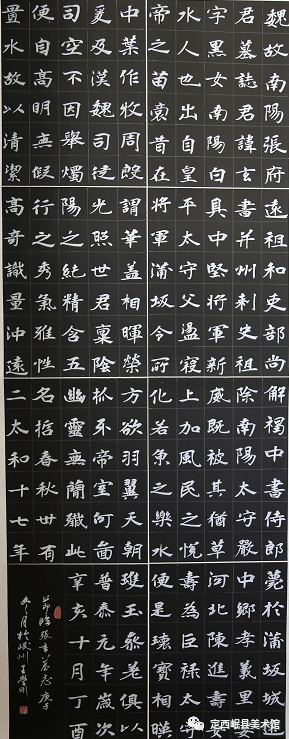 魏故南陽張府
君墓誌君諱玄
字黑女南陽白
水人也出自皇
帝之苗裔昔在
中葉作牧周殷
爰及漢魏司徒
司空不因舉燭
便自高明無假
置水故以清潔
遠祖和吏部尚
書并州刺史祖
具中堅將軍新
平太守父盪寇
將軍蒲坂令所
謂華蓋相暉榮
光照世君稟陰
陽之絕精含五
行之秀氣雅性
高奇識量沖遠
解褐中書侍郎
除南陽太守嚴
威既被其猶草
上加風民之悅
化若魚之樂水
方欲羽翼天朝
抓牙帝室何啚
幽靈無簡殲此
名哲春秋卅有
二太和十七年
薨於蒲坂城建
中鄉孝義里妻
河北陳進壽女
壽為巨祿太守
便是瓌寶相暎
瓊玉參差俱以
普泰元年歲次
辛亥十月丁酉
節臨張玄墓志庚子
冬月於岷州王學
定西岷县美术馆